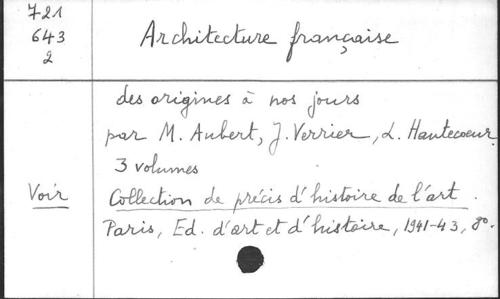 721
643
2
Architecture française
des origines à nos jours
par M. Aubert, J. Verrier, L. Hautecoeur.
3 volumes
Voir
Collection de précis d'histoire de l'art.
Paris, Ed. d'art et d'histoire, 1941-43, 8°.